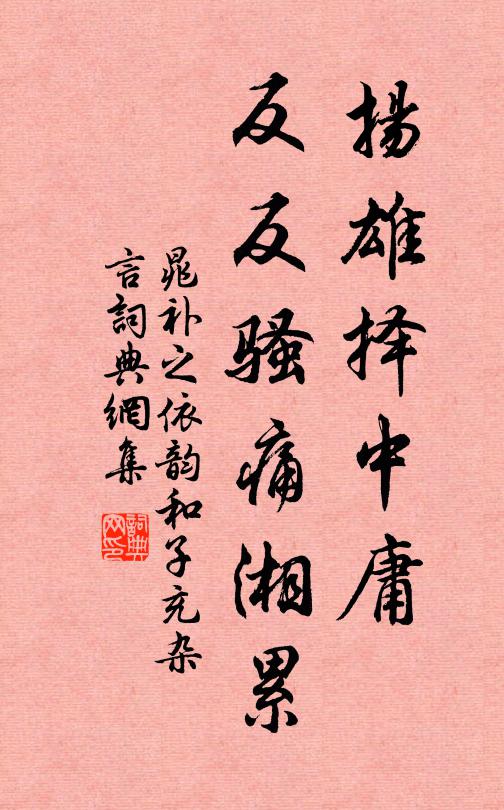 揚雄择中庸
反反骚痛湘累
晁补之依韵和子充杂
言詞典網集
詞典网印